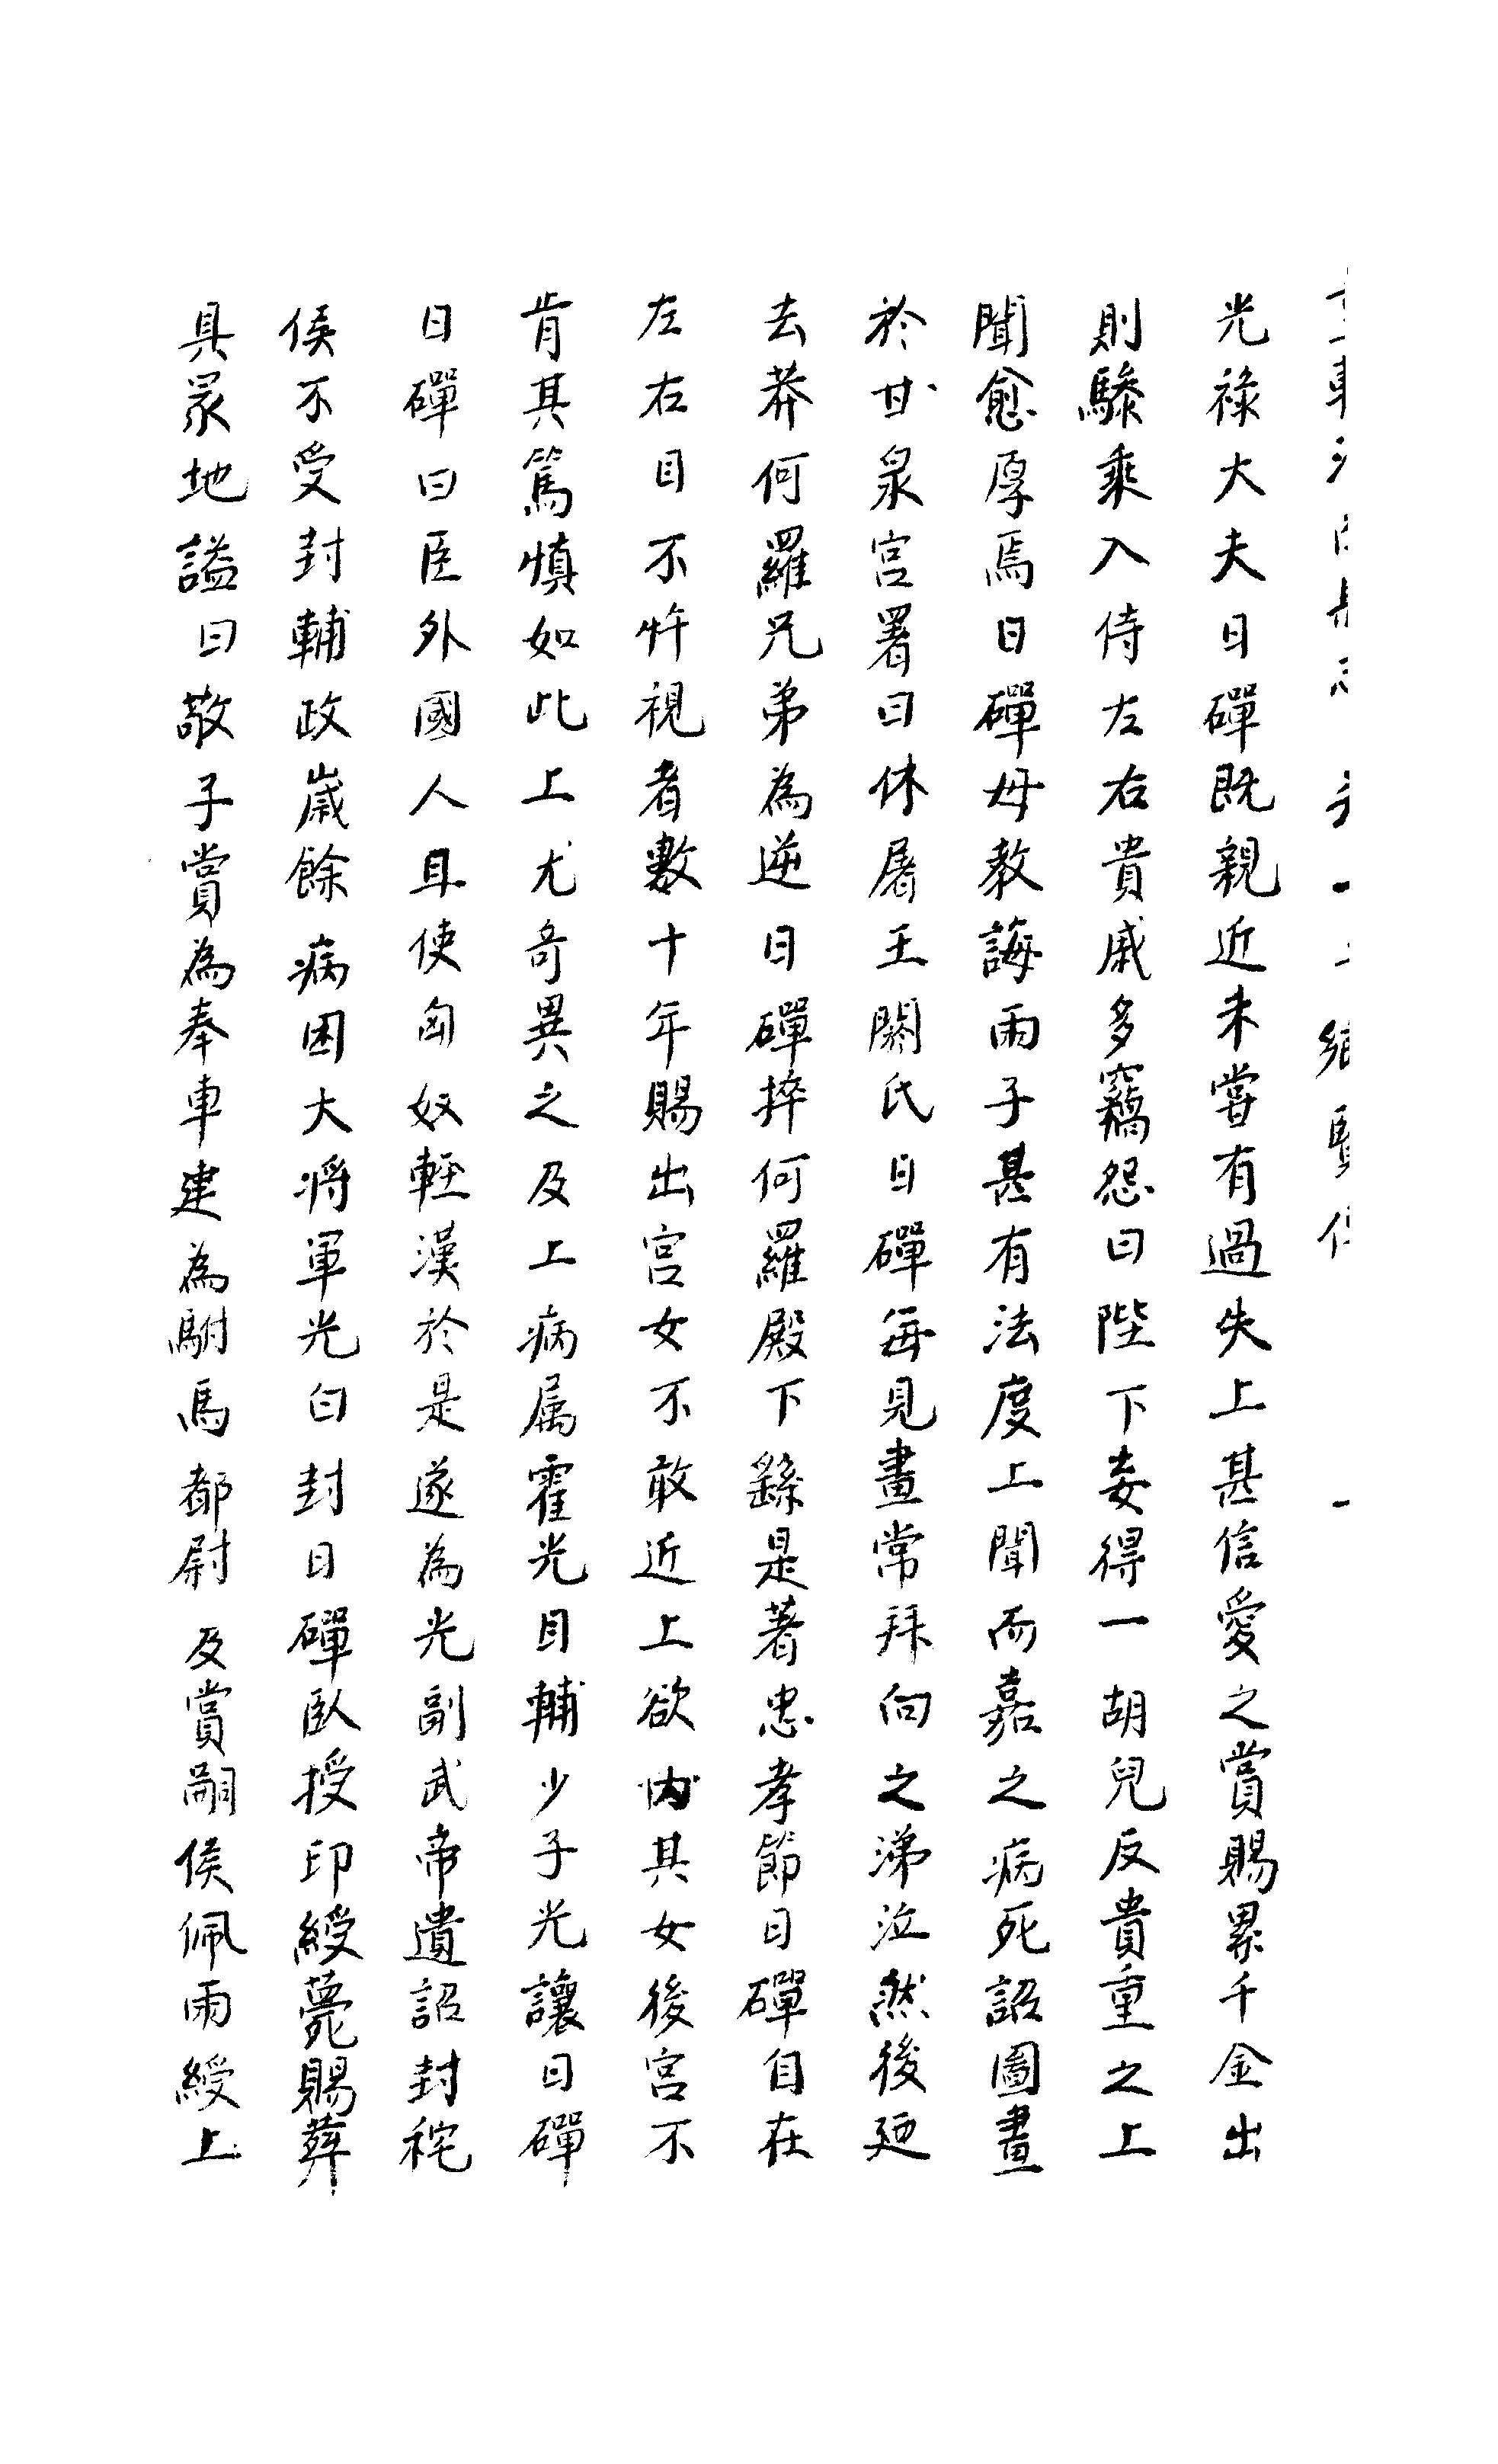 光祿大夫日磾既親近未嘗有過失上甚信愛之賞賜累千金出
則驂乘入侍左右貴戚多竊怨曰陛下妄得一胡兒反貴重之上
聞愈厚焉日磾母教誨兩子甚有法度上聞而嘉之病死詔圖畫
於甘泉宮署曰休屠王閼氏日磾每見畫常拜向之涕泣然後廼
去莽何羅兄弟為逆日磾捽何羅殿下繇是著忠孝節日磾自在
左右目不忤視者數十年賜出宮女不敢近上欲內其女後宮不
肯其篤慎如此上尤奇異之及上病属霍光目輔少子光讓日磾
日磾曰臣外國人且使匈奴輕漢於是遂為光副武帝遺詔封秺
侯不受封輔政歲餘病困大將軍光白封日磾臥授印綬薨賜葬
具冡地謚曰敬子賞為奉車建為駙馬都尉及賞嗣侯佩兩綬上